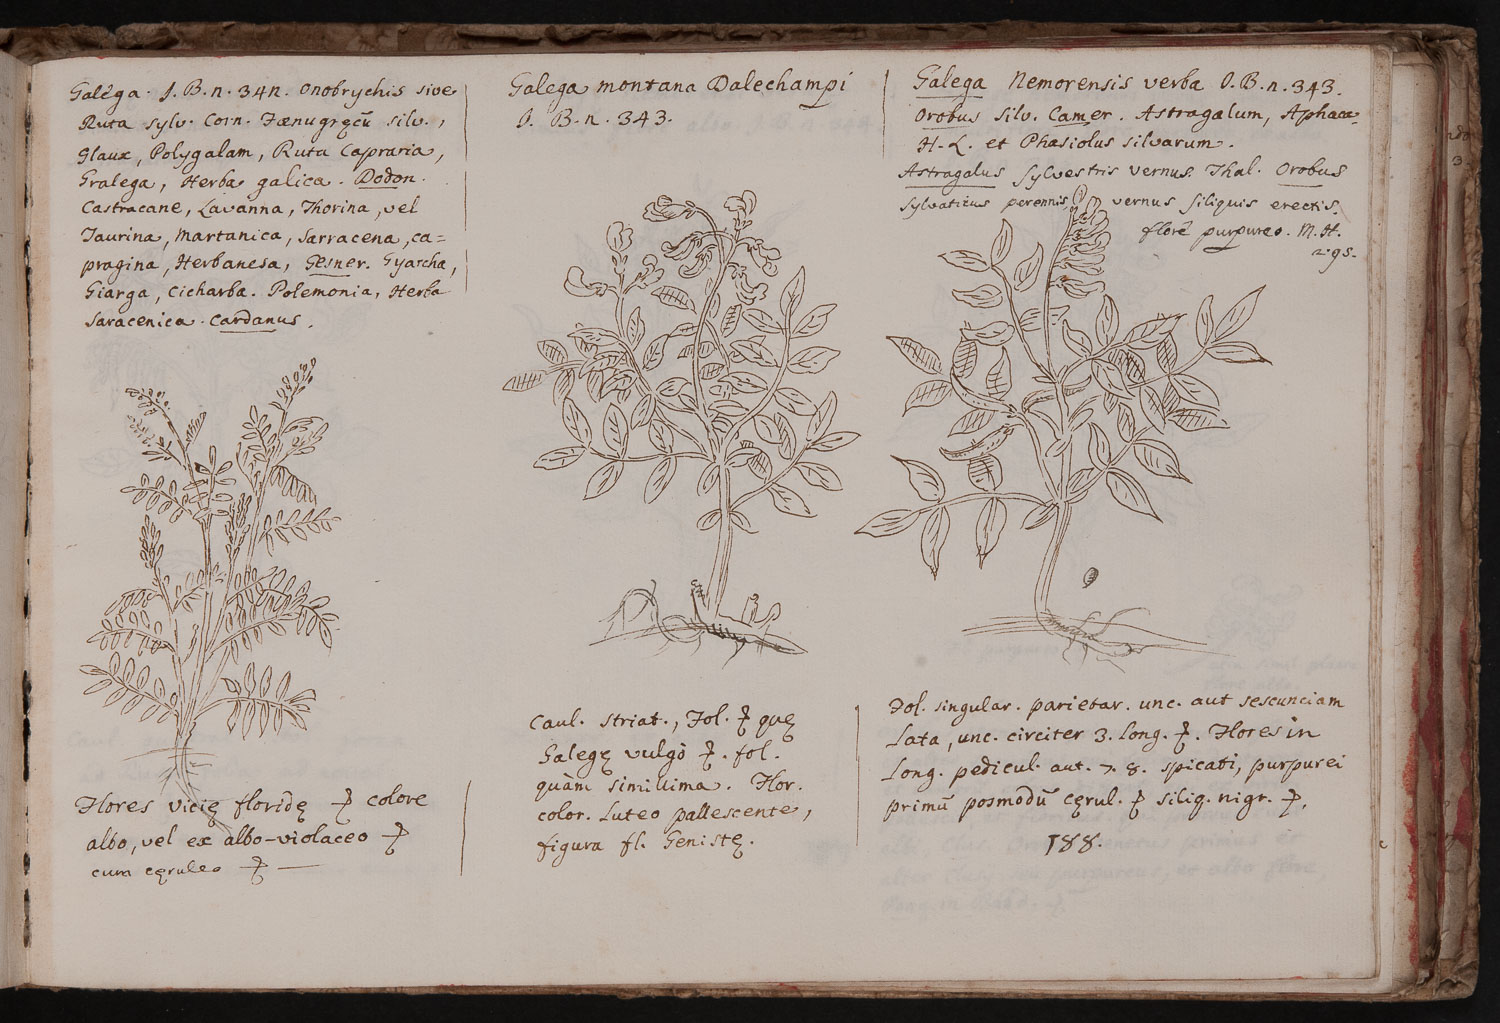 Galega. J. B. n. 342. Onobrychis sive
Ruta sylv. Corn. Fænugręcũ silv.,
Glaux, Polygalam, Ruta Capraria,
Gralega, Herba galica. Dodon.
Castracane, Lavanna, Thorina, vel
Taurina, Martanica, Sarracena, ca=
pragina, Herbanesa, Gesner. Gyarcha,
Giarga, Cicharba. Polemonia, Herba
Saracenica. Cardanus.
Flores vicię floridę colore
albo, vel ex albo-violaceo
cum cęruleo
Galega montana Dalechampi
J. B. n. 343.
Caul. striat., Fol. quę
Galegę vulgò fol.
quàm simillima. Flor.
color. Luteo pallescente,
figura fl. Genistę.
Galega Nemorensis verba J. B. n. 343.
Orobus Silv. Camer. Astragalum, Aphaca
H. L. et Phasiolus silvarum.
Astragalus Sylvestris vernus. Thal. Orobus
Sylvaticus perennis, vernus siliquis erectis.
flore purpureo. M. H.
2. 95.
Fol. singular. parietar. unc. aut sescunciam
Lata, unc. circiter 3. Long. Flores in
Long. pedicul. aut. 7. 8. spicati, purpurei
primũ posmodũ cęrul. siliq. nigr.
188.